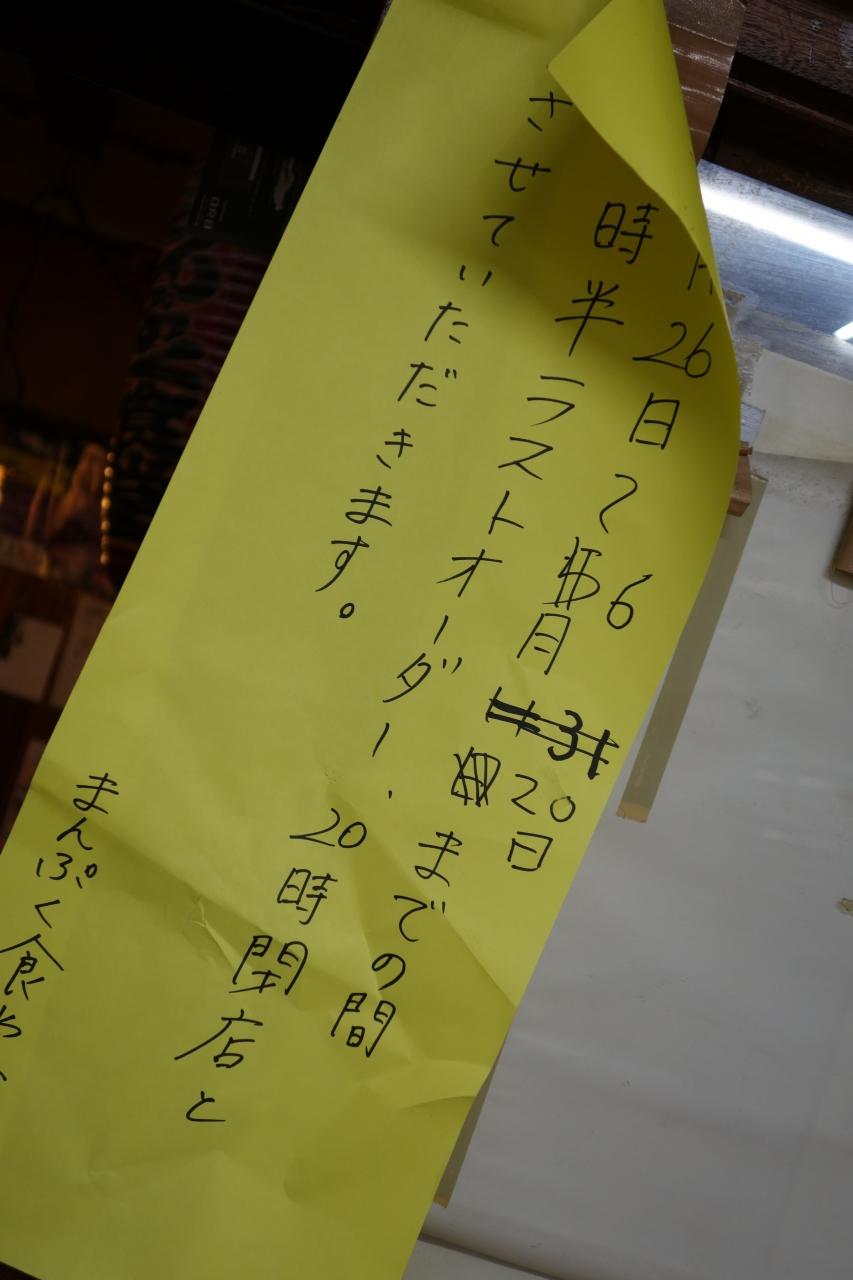 月26日〜6月20日までの間
時半ラストオーダー、20時閉店と
させていただきます。
まんぷく食